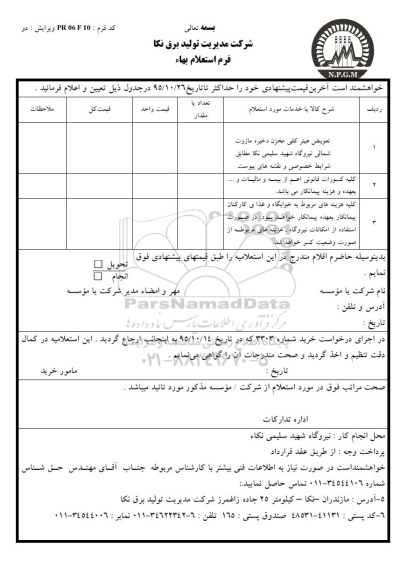 بسمه تعالی
کد فرم : PR 06 F 10 ویرایش : دو
شرکت مدیریت تولید برق نکا
فرم استعلام بهاء
N.P.G.M
خواهشمند است آخرین قیمت پیشنهادی خود را حداکثر تا تاریخ ۹۵/۱۰/۲۶ درجدول ذیل تعیین و اعلام فرمائید .
ردیف
شرح کالا یا خدمات مورد استعلام
تعداد یا مقدار
قیمت واحد
قیمت کل
ملاحظات
۱
تعویض هیتر کفی مخزن ذخیره مازوت
شمالی نیروگاه شهید سلیمی نکا مطابق
شرایط خصوصی و نقشه های پیوست
۲
کلیه کسورات قانونی اعم از بیمه و مالیات و ...
بعهده و هزینه پیمانکار می باشد.
۳
کلیه هزینه های مربوط به خوابگاه و غذا ی کارکنان
پیمانکار بعهده پیمانکار خواهد بود. در صورت
استفاده از امکانات نیروگاه ، هزینه های مربوطه از
صورت وضعیت کسر خواهد شد.
بدینوسیله حاضرم اقلام مندرج در این استعلامیه را طبق قیمتهای پیشنهادی فوق
تحویل
انجام
نمایم .
نام شرکت یا مؤسسه
مهر و امضاء مدیر شرکت یا مؤسسه
آدرس و تلفن :
تاریخ :
ParsNamadData
مرکز فرآوری اطلاعات پارس نماد داده ها
۰۲۱-۸۸۳۴۹۶۷۰-۵
در اجرای درخواست خرید شماره ۳۳۰۳ که در تاریخ ۹۵/۱۰/۱۴ به اینجانب ارجاع گردید . این استعلامیه در کمال
دقت تنظیم و اخذ گردید و صحت مندرجات آن را گواهی می نمایم .
تاریخ :
مامور خرید
صحت مراتب فوق در مورد استعلام از شرکت / مؤسسه مذکور مورد تائید میباشد .
اداره تدارکات
محل انجام کار : نیروگاه شهید سلیمی نکاء
پرداخت وجه : از طریق عقد قرارداد
خواهشمنداست در صورت نیاز به اطلاعات فنی بیشتر با کارشناس مربوطه جناب آقای مهندس حق شناس
شماره ۳۴۵۴۴۱۰۶-۰۱۱ تماس حاصل نمایید.:
۵-آدرس : مازندران –نکا – کیلومتر ۲۵ جاده زاغمرز شرکت مدیریت تولید برق نکا
۶-کد پستی : ۴۱۱۳۱-۴۸۵۳۱ صندوق پستی : ۱۶۵ تلفن : ۶-۳۴۶۲۲۳۴۲-۰۱۱ نمابر : ۳۴۵۴۴۰۰۶-۰۱۱